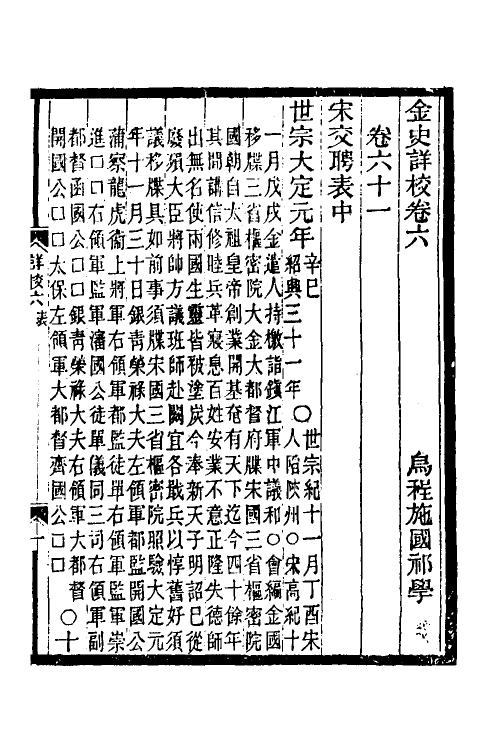 金史詳校卷六
烏程施國祁學
卷六十一
宋交聘表中
世宗大定元年
辛巳 世宗紀十一月丁酉宋
紹興三十一年〇人陷陝州〇宋高紀十
一月戊戌金遣人持檄詣鎮江軍中議和〇會編金國
移牒三省樞密院大金大都督府牒宋國三省樞密院
國朝自太祖皇帝創業開基奄有天下迄今四十餘年
其間講信修睦兵革寢息百姓安業不意正隆失德師
出無名使兩國生靈皆被塗炭今奉新天子明詔已從
廢殞大臣將帥方議班師赴闕宜各戢兵以惇舊好須
議移牒具如前事須牒宋國三省樞密院照驗大定元
年十一月三十日銀青榮祿大夫左領軍都監開國公
蒲察龍虎衛上將軍右領軍都監徒單右領軍監軍崇
進□□右領軍監軍潘國公徒單儀同三司右領軍副
都督函國公□□銀青榮祿大夫右領軍大都督
開國公□□太保左領軍大都督齊國公□□〇十
詳校六 表
一